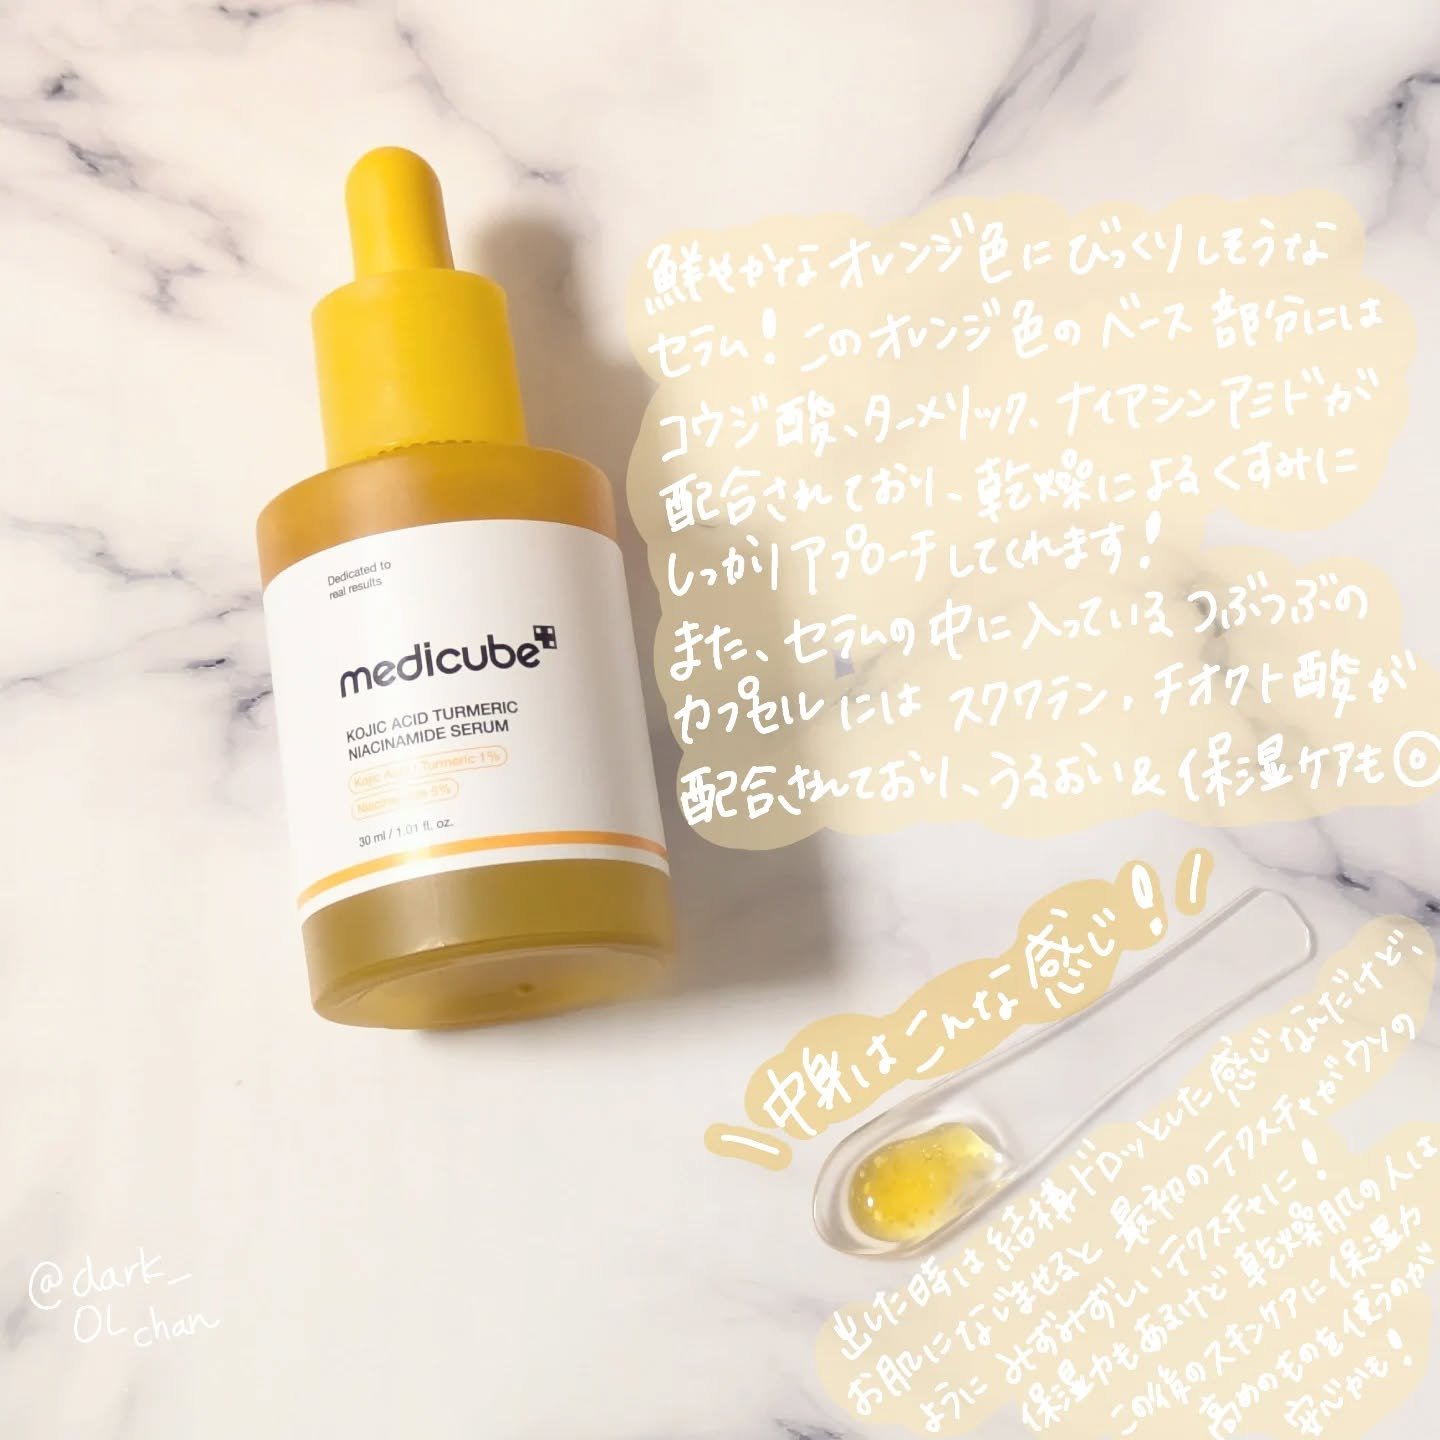 Dedicated to
real results
medicube
KOJIC ACID TURMERIC
NIACINAMIDE SERUM
Kojic Acid · Turmeric 1%
Niacinamide 5%
30 ml / 1.01 fl. oz.
鮮やかなオレンジ色にびっくりしそうな
セラム!このオレンジ色のベース部分には
コウジ酸、ターメリック、ナイアシンアミドが
配合されており、乾燥によるくすみに
しっかりアプローチしてくれます!
また、セラムの中に入っているつぶつぶの
カプセルにはスクワテン,チオクト酸が
配合されており、うるおい&保湿ケアも◎
\中身はこんな感じ!/
出した時は結構ドロッとした感じなんだけど、
お肌になじませると最初のテクスチャがウソの
ようにみずみずしいテクスチャに!
保湿力もあるけど乾燥肌の人は
この後のスキンケアに保湿力
高めのものを使うのが
安心かも!
@dark_
OLchan